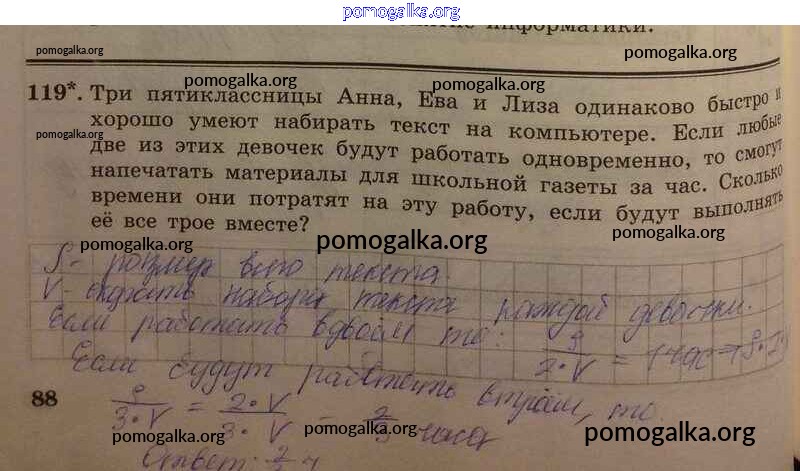 pomogalka.org
информатики.
pomogalka.org pomogalka.org
pomogalka.org pomogalka.org pomogalka.org
119*. Три пятиклассницы Анна, Ева и Лиза одинаково быстро и
хорошо умеют набирать текст на компьютере. Если любые
pomogalka.org
две из этих девочек будут работать одновременно, то смогут
напечатать материалы для школьной газеты за час. Сколько
времени они потратят на эту работу, если будут выполнять
её все трое вместе?
pomogalka.org pomogalka.org pomogalka.org
S - размер всего текста.
V - скорость набора текста каждой девочки.
Если работать вдвоем то: S/2·V = 1 час
Если будут работать втроём, то
88
S/3·V = 2·V/3·V = 2/3 часа
pomogalka.org pomogalka.org pomogalka.org
Ответ: 2/3 ч